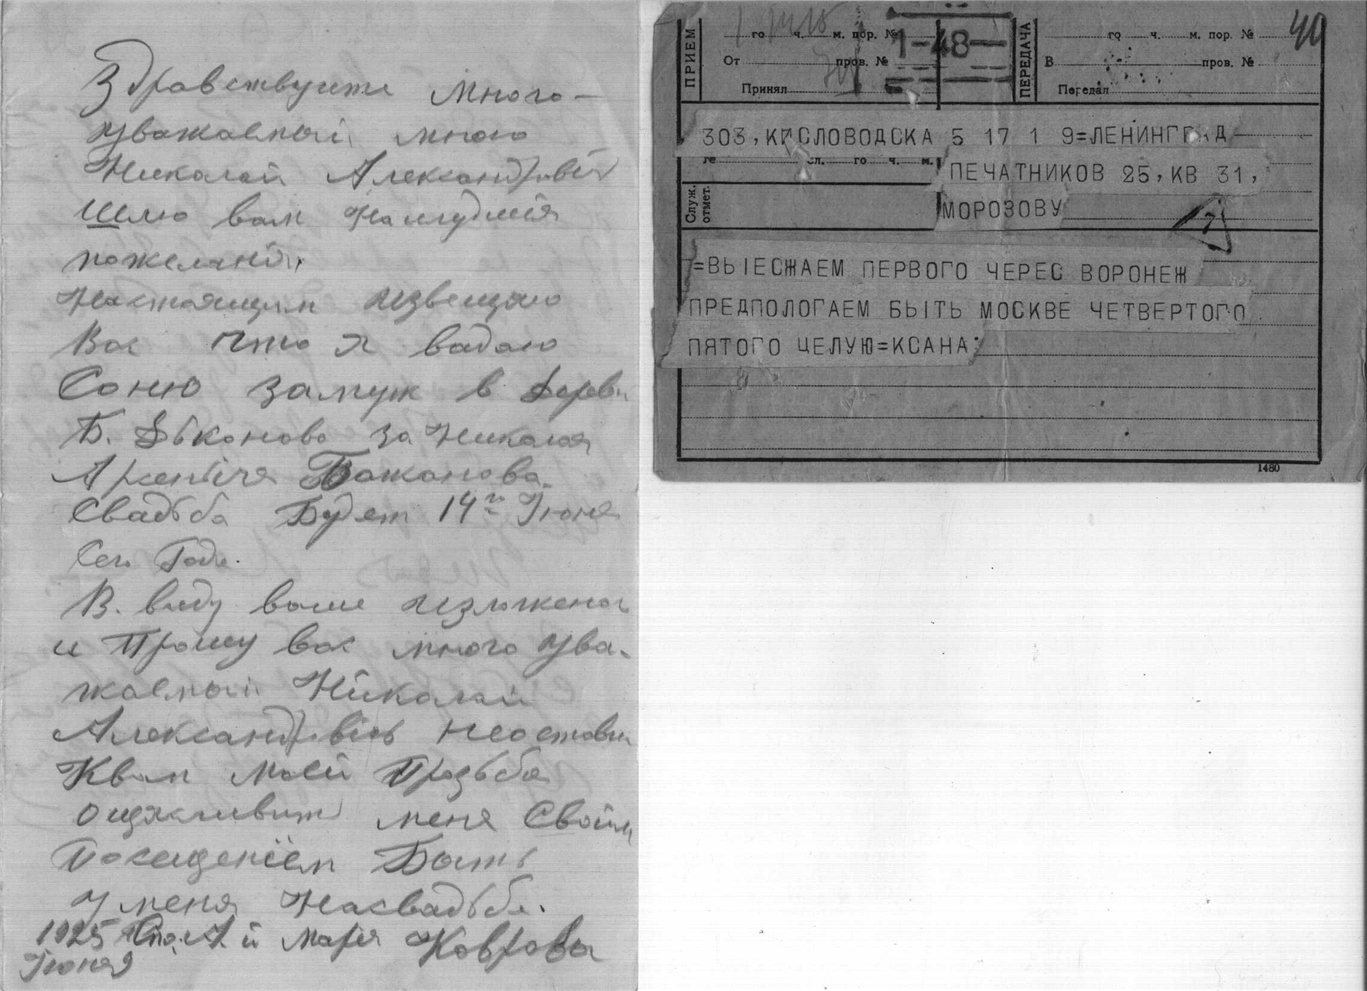 Здравствуите много-
уважаемый мною
Николай Александровичь
Шлю вам Наилудшія
пожеланія,
Настоящим извещаю
Вас что я вадаю
Соню замуж в дерев
Б. Дьконово за Николая
Арсеньича Бажанова.
Свадьба Будет 14го Іюня
Сего Года.
В. виду выше изложеног
и Прошу вас много ува-
жаемый Николай
Александрвичь неоставш
Квам моей Прозьбе
ощясливит меня Своим
Посещеніем Быть
У меня Насвадьбе.
1925 и Марія Ковровы
Іюня 9
ПРИЕМ
го ч. м. пор. №
1-48-
От пров. №
Принял
ПЕРЕДАЧА
го ч. м. пор. №
40
В пров. №
Передал
303, КИСЛОВОДСКА 5 17 1 9=ЛЕНИНГРАД
№ сл. го ч. м.
Служ. отмет.
ПЕЧАТНИКОВ 25, КВ 31,
МОРОЗОВУ
=ВЫЕСЖАЕМ ПЕРВОГО ЧЕРЕС ВОРОНЕЖ
ПРЕДПОЛОГАЕМ БЫТЬ МОСКВЕ ЧЕТВЕРТОГО
ПЯТОГО ЦЕЛУЮ=КСАНА
1480